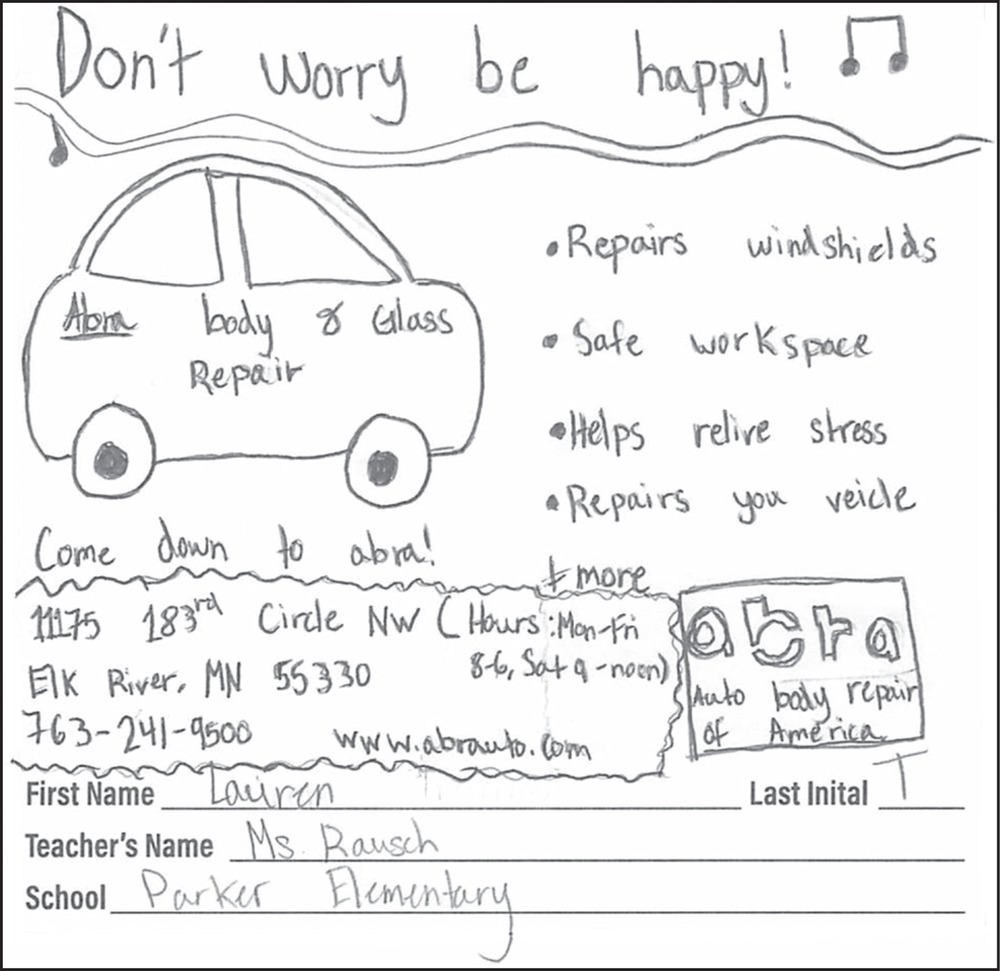 Don't worry be happy!
Abra body & Glass
Repair
• Repairs windshields
• Safe workspace
• Helps relive stress
• Repairs you veicle
+ more
Come down to abra!
11175 183rd Circle NW (Hours: Mon-Fri
8-6, Sat 9-noon)
Elk River, MN 55330
763-241-9500 www.abrauto.com
abra
Auto body repair
of America
First Name Lauren Last Inital T
Teacher's Name Ms. Rausch
School Parker Elementary